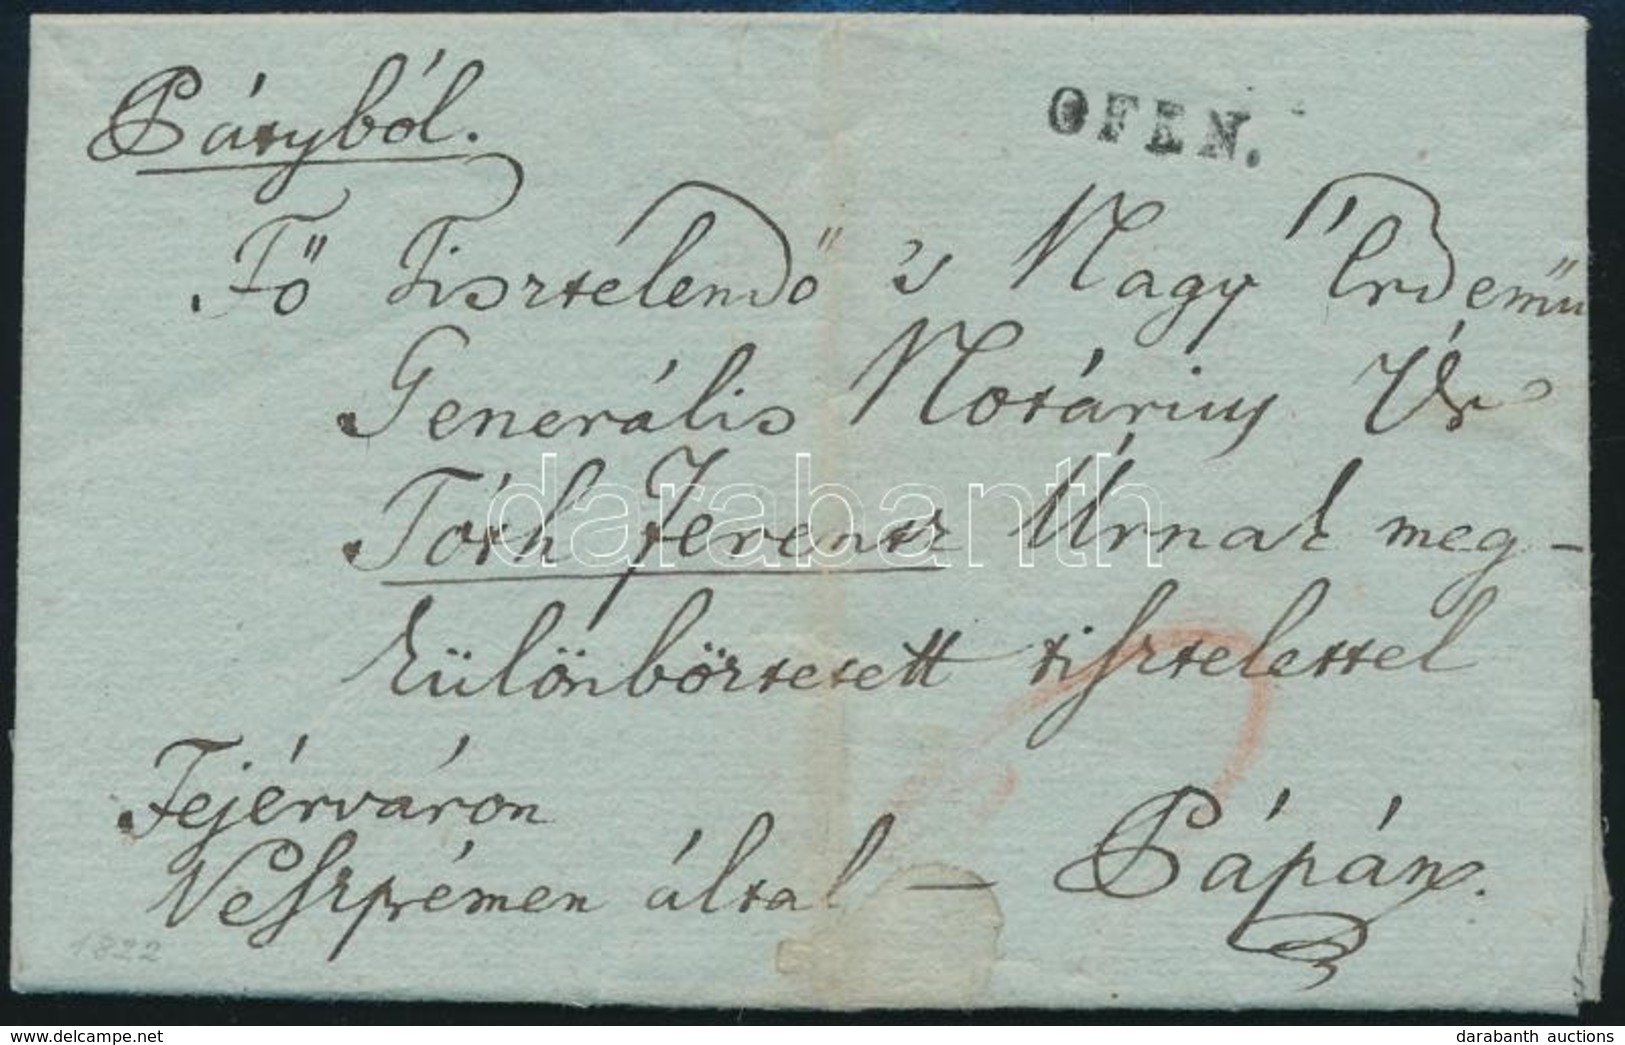 Pátyból.
OFEN.
Fő Tisztelendő 's Nagy Érdemű
Generális Notárius Úr
Tóth Ferentz Úrnak meg-
különböztetett tisztelettel
Fejérváron
Veszprémen által — Pápán.
1822
darabanth
delcampe.net
darabanth auctions